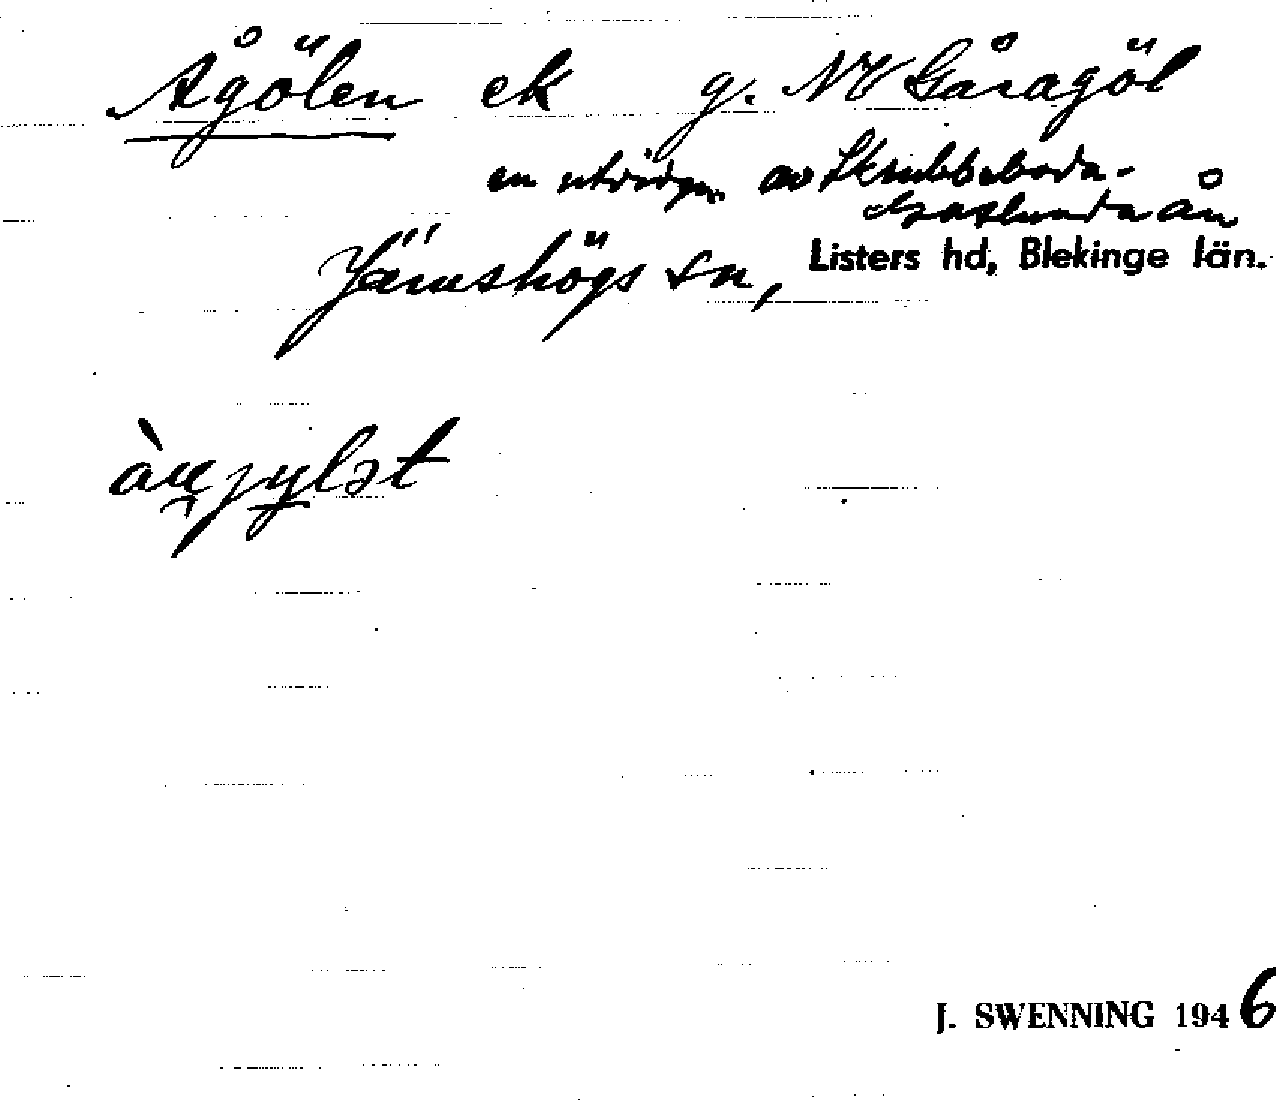 Ågölen ek g. NV Gåragöl
en utvidgn. av Skrubbeboda-
Graslunda ån
Jämshögs sn, Listers hd, Blekinge län.
J. SWENNING 1946